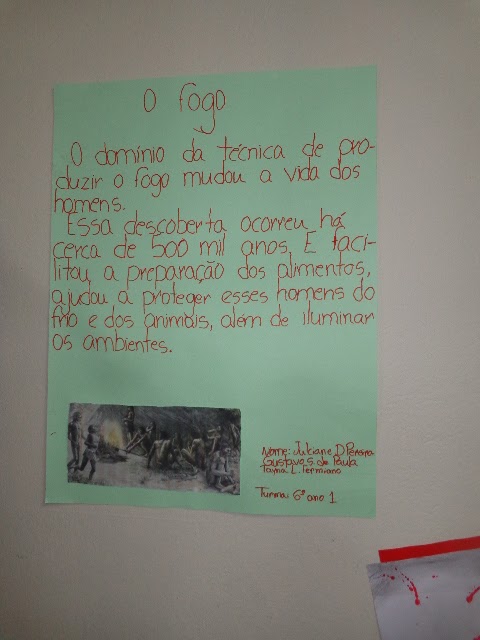 O fogo
O domínio da técnica de pro-
duzir o fogo mudou a vida dos
homens.
Essa descoberta ocorreu há
cerca de 500 mil anos. E faci-
litou a preparação dos alimentos,
ajudou a proteger esses homens do
frio e dos animais, além de iluminar
os ambientes.
Nome: Juliane D Pereira
Gustavo S. de Paula
L.
Turma: 6º ano 1